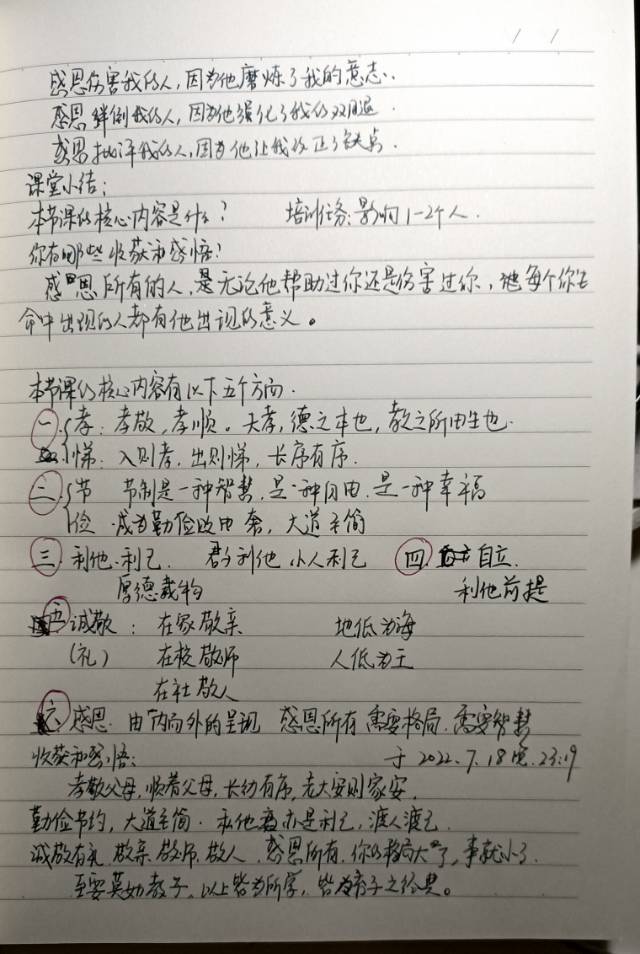 感恩伤害我的人，因为他磨炼了我的意志.
感恩绊倒我的人，因为他强化了我的双腿.
感恩批评我的人，因为他让我改正了缺点.
课堂小结：
本节课的核心内容是什么？ 培训任务：影响1-2个人.
你有哪些收获和感悟？
感恩所有的人，是无论他帮助过你还是伤害过你，每个你生
命中出现的人都有他出现的意义。
本节课的核心内容有以下五个方向.
一 孝：孝敬，孝顺。夫孝，德之本也，教之所由生也.
悌：入则孝，出则悌，长序有序.
二 节 节制是一种智慧，是一种自由，是一种幸福
俭 成为勤俭败由奢，大道至简
三 利他.利己 君子利他 小人利己 四 自立.
厚德载物 利他前提
五 诚敬： 在家敬亲 地低为海
（礼） 在校敬师 人低为王
在社敬人
六 感恩. 由内向外的呈现 感恩所有 需要格局.需要智慧
收获和感悟： 于2022.7.18晚.23:19
孝敬父母，顺着父母，长幼有序，老大安则家安.
勤俭节约，大道至简. 利他亦是利己，渡人渡己.
诚敬有礼.敬亲.敬师.敬人. 感恩所有.你的格局大了，事就小了.
至要莫如教子，以上皆为所学，皆为育子之经典。